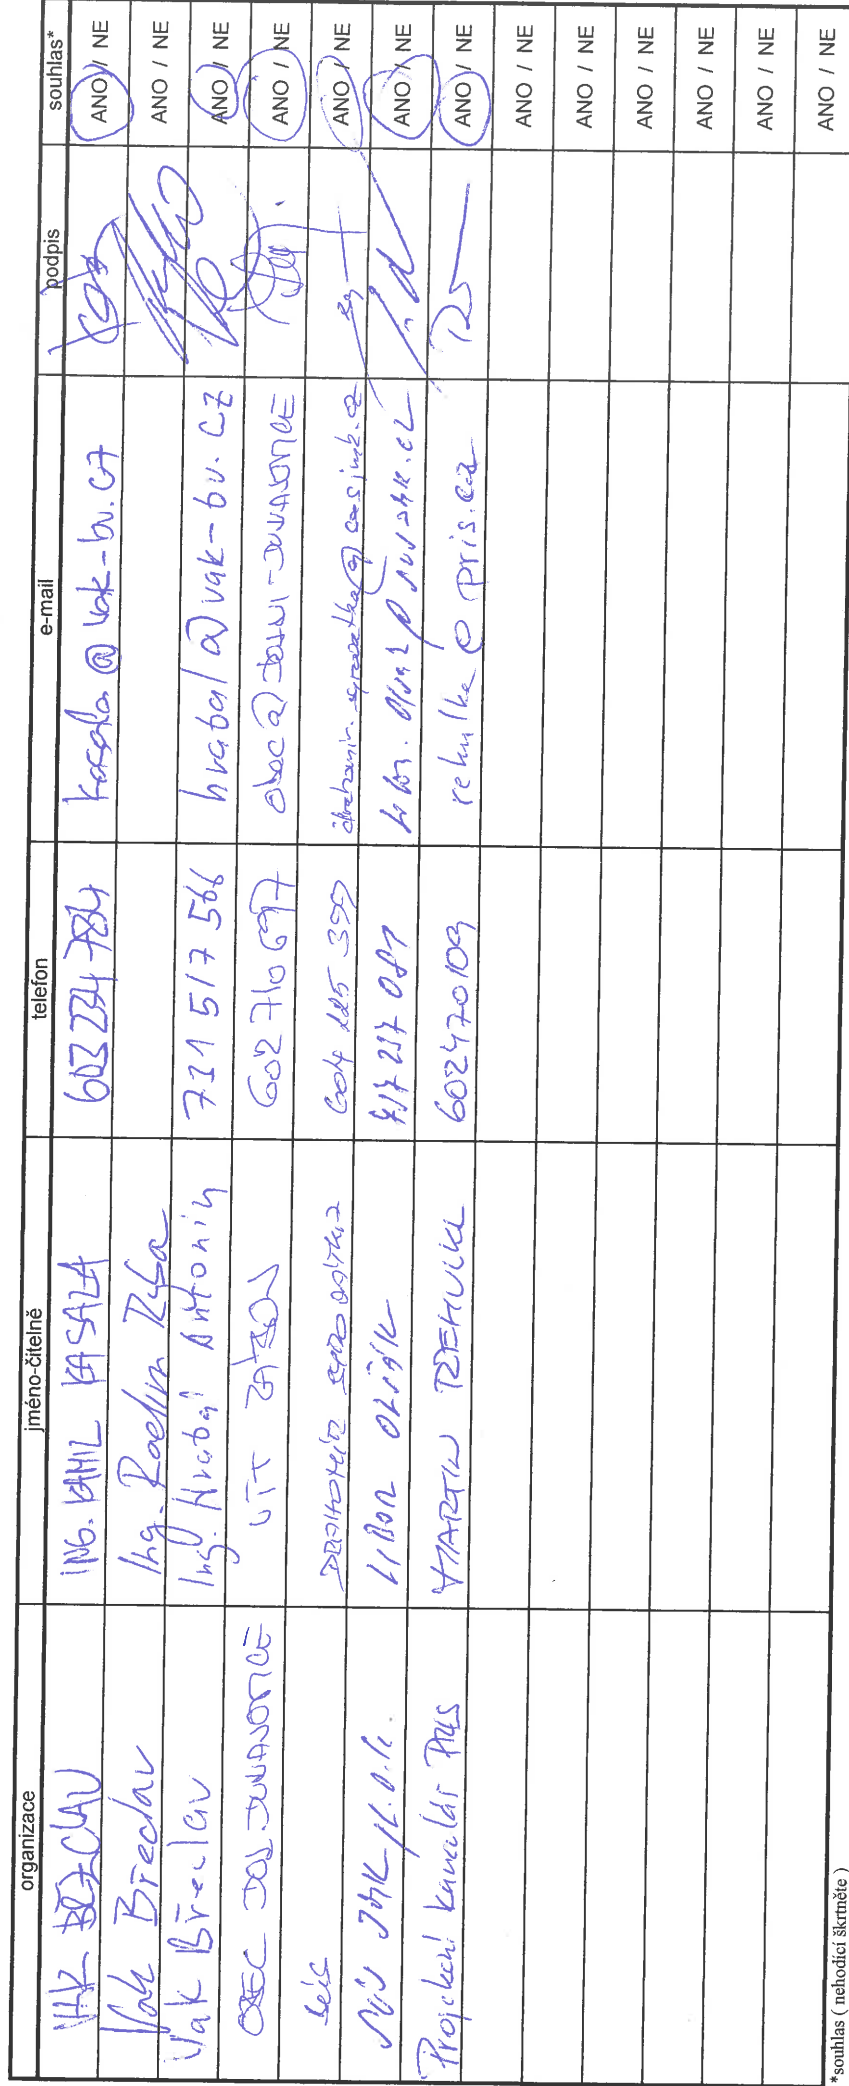 organizace jméno-čitelně telefon e-mail podpis souhlas*
VAK BŘECLAV ING. KAMIL KASALA 603 234 784 kasala@vak-bv.cz ANO / NE
Vak Břeclav Ing. Radim Ryba ANO / NE
Vak Břeclav Ing. Hrabal Antonín 731 517 566 hrabal@vak-bv.cz ANO / NE
OBEC DOL DUNAJOVICE VÍT ZATŘOU 602 710 697 obec@DOLNI-DUNAJOVICE ANO / NE
604 225 399 ANO / NE
SÚS JMK p.o.k. LIBOR OLŠÁK 737 237 081 ANO / NE
Projekční kancelář PRIS MARTIN ŘEHULKA 602470109 rehulka@pris.cz ANO / NE
ANO / NE
ANO / NE
ANO / NE
ANO / NE
ANO / NE
ANO / NE
*souhlas ( nehodící škrtněte )